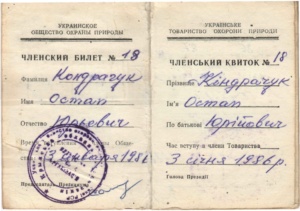 УКРАИНСКОЕ
ОБЩЕСТВО ОХРАНЫ ПРИРОДЫ
ЧЛЕНСКИЙ БИЛЕТ № 18
Фамилия Кондрачук
Имя Остап
Отчество Юрьевич
3 января 1986
УКРАЇНСЬКЕ
ТОВАРИСТВО ОХОРОНИ ПРИРОДИ
ЧЛЕНСЬКИЙ КВИТОК № 18
Прізвище Кіндрачук
Ім'я Остап
По батькові Юрійович
Час вступу в члени Товариства
3 січня 1986 р.
Голова Президії